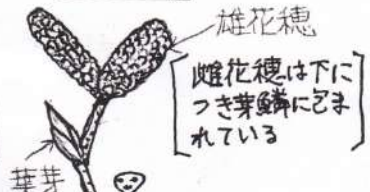 雄花穂
雌花穂は下に
つき葉鱗に包ま
れている
葉芽